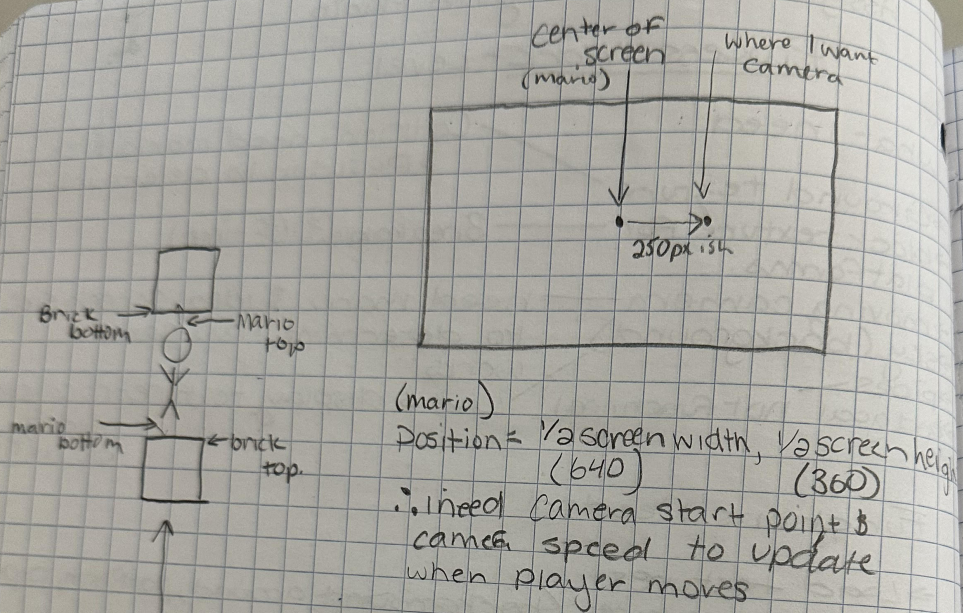 center of
screen
(mario)
where I want
camera
250px ish
Brick
bottom
Mario
top
mario
bottom
brick
top.
(mario)
Position = 1/2 screen width, 1/2 screen heigh
(640)
(360)
∴ I need camera start point &
camera speed to update
when player moves